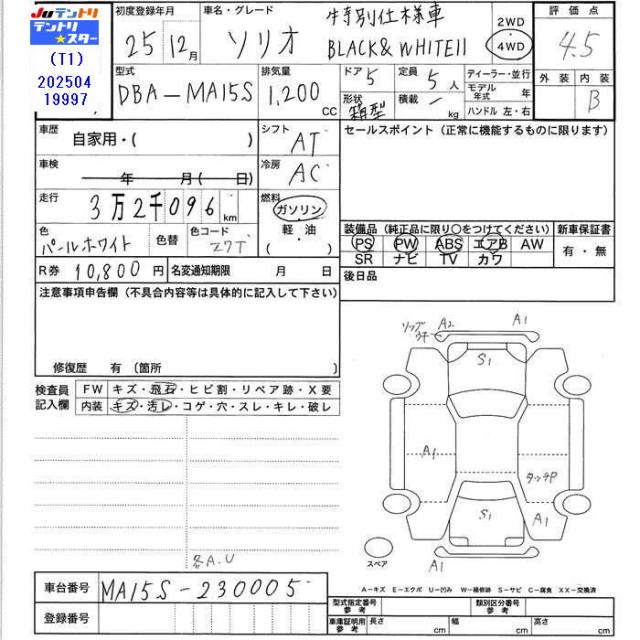 JUテントリ
テントリ★スター
(T1)
202504
19997
初度登録年月
25 12月
車名・グレード
ソリオ
特別仕様車
BLACK & WHITE II
2WD
4WD
評価点
4.5
外装 内装
B
型式
DBA-MA15S
排気量
1,200 CC
ドア 5
定員 5人
ディーラー・並行
モデル年式 年
形状 箱型
積載 - kg
ハンドル 左・右
車歴
自家用・( )
シフト
AT
セールスポイント(正常に機能するものに限ります)
車検
年 月( 日)
冷房
AC
走行
3万2千096km
燃料
ガソリン
軽・油
( )
色
パールホワイト
色替
色コード
Z7T
装備品(純正品に限り○をつけてください)
新車保証書
PS PW ABS エアB AW
SR ナビ TV カワ
有・無
R券 10,800円
名変通知期限 月 日
後日品
注意事項申告欄(不具合内容等は具体的に記入して下さい)
修復歴 有(箇所 )
検査員
記入欄
FW キズ・飛石・ヒビ割・リペア跡・X要
内装 キズ・汚レ・コゲ・穴・スレ・キレ・破レ
各A.U
A2
A1
S1
A1
タッチP
S1
A1
A1
スペア
車台番号 MA15S-230005
登録番号
A-キズ E-エクボ U-凹み W-補修跡 S-サビ C-腐食 XX-交換済
型式指定番号
参考
類別区分番号
参考
車庫証明用
参考
長さ cm
幅 cm
高さ cm